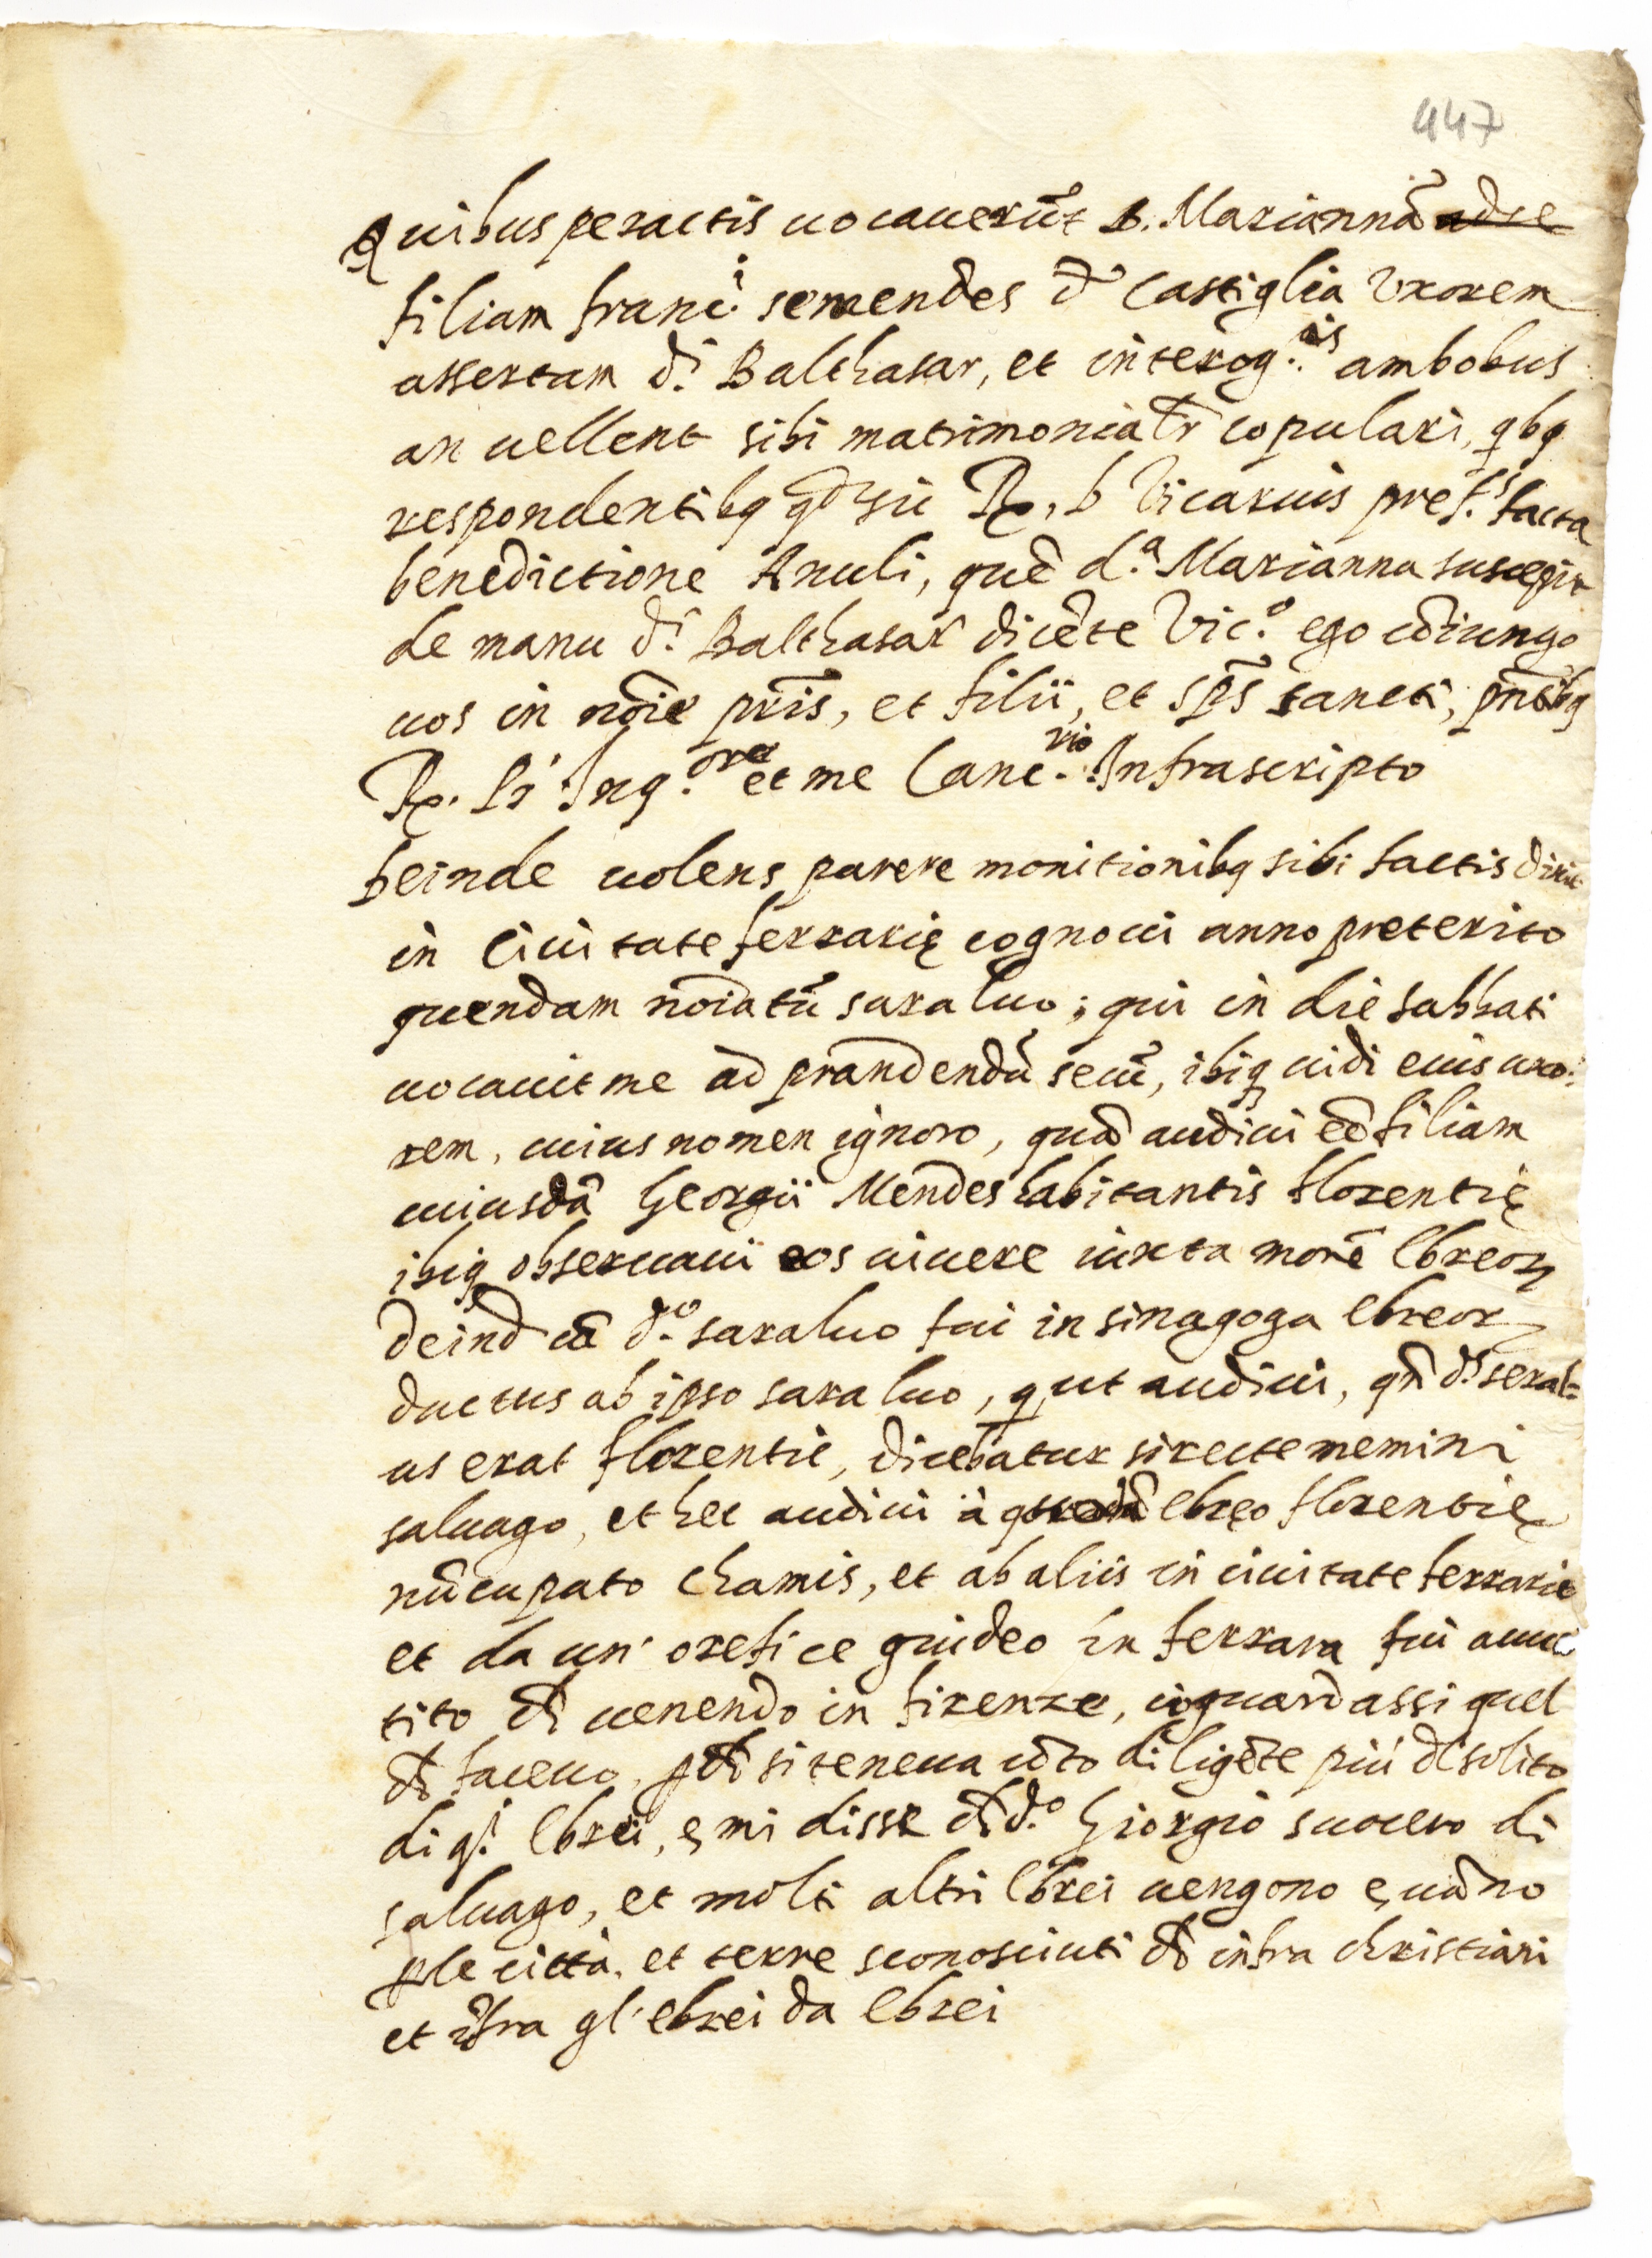 447
Quibus peractis uocauerũt D. Mariannã ad se
filiam franc.i semendes d Castiglia Vxorem
assertam d.i Balthasar, et interog.is ambobus
an uellent sibi matrimonialr copulari, qbq
respondentibq qd sic R. D Vicarius pref.s facta
benedictione Anuli, quẽ d.a Marianna suscepit
de manu d.i Balthasar dicẽte Vic.o ego cõiungo
uos in noĩe pr̃is, et filii, et sp̃s sancti, pñtibq
R. P. Inq.ore et me Canc.rio Infrascripto
Deinde uolens parere monitionibq sibi factis dixit
in Ciuitate ferrarię cognoui anno preterito
quendam noĩatũ saraluo; qui in die sabbati
uocauit me ad prandendũ secũ, ibiq uidi eius uxo:
rem, cuius nomen ignoro, quã audiui eẽ filiam
cuiusdã Georgii Mendes habitantis florentię
ibiq obseruaui eos uiuere iuxta morẽ Ebreoꝝ
deind cũ d.o saraluo fui in sinagoga Ebreoꝝ
ductus ab ipso saraluo, q ut audiui, qñ d.s seral=
us erat florentie, dicebatur si recte memini
saluago, et hec audiui à quodã ebręo florentię
nũcupato Chamis, et ab aliis in ciuitate ferrarie
et da un' orefice guideo in ferrara fui auuer
tito ch uenendo in firenze, io guardassi quel
ch faceuo, pch si teneua cõto diligẽte più dl solito
di q.i Ebrei, e, mi disse ch d.o Giorgio suocero di
saluago, et molti altri Ebrei uengono e, uãno
ple città, et terre sconosciuti ch infra christiani
et ĩfra gl'ebrei da Ebrei